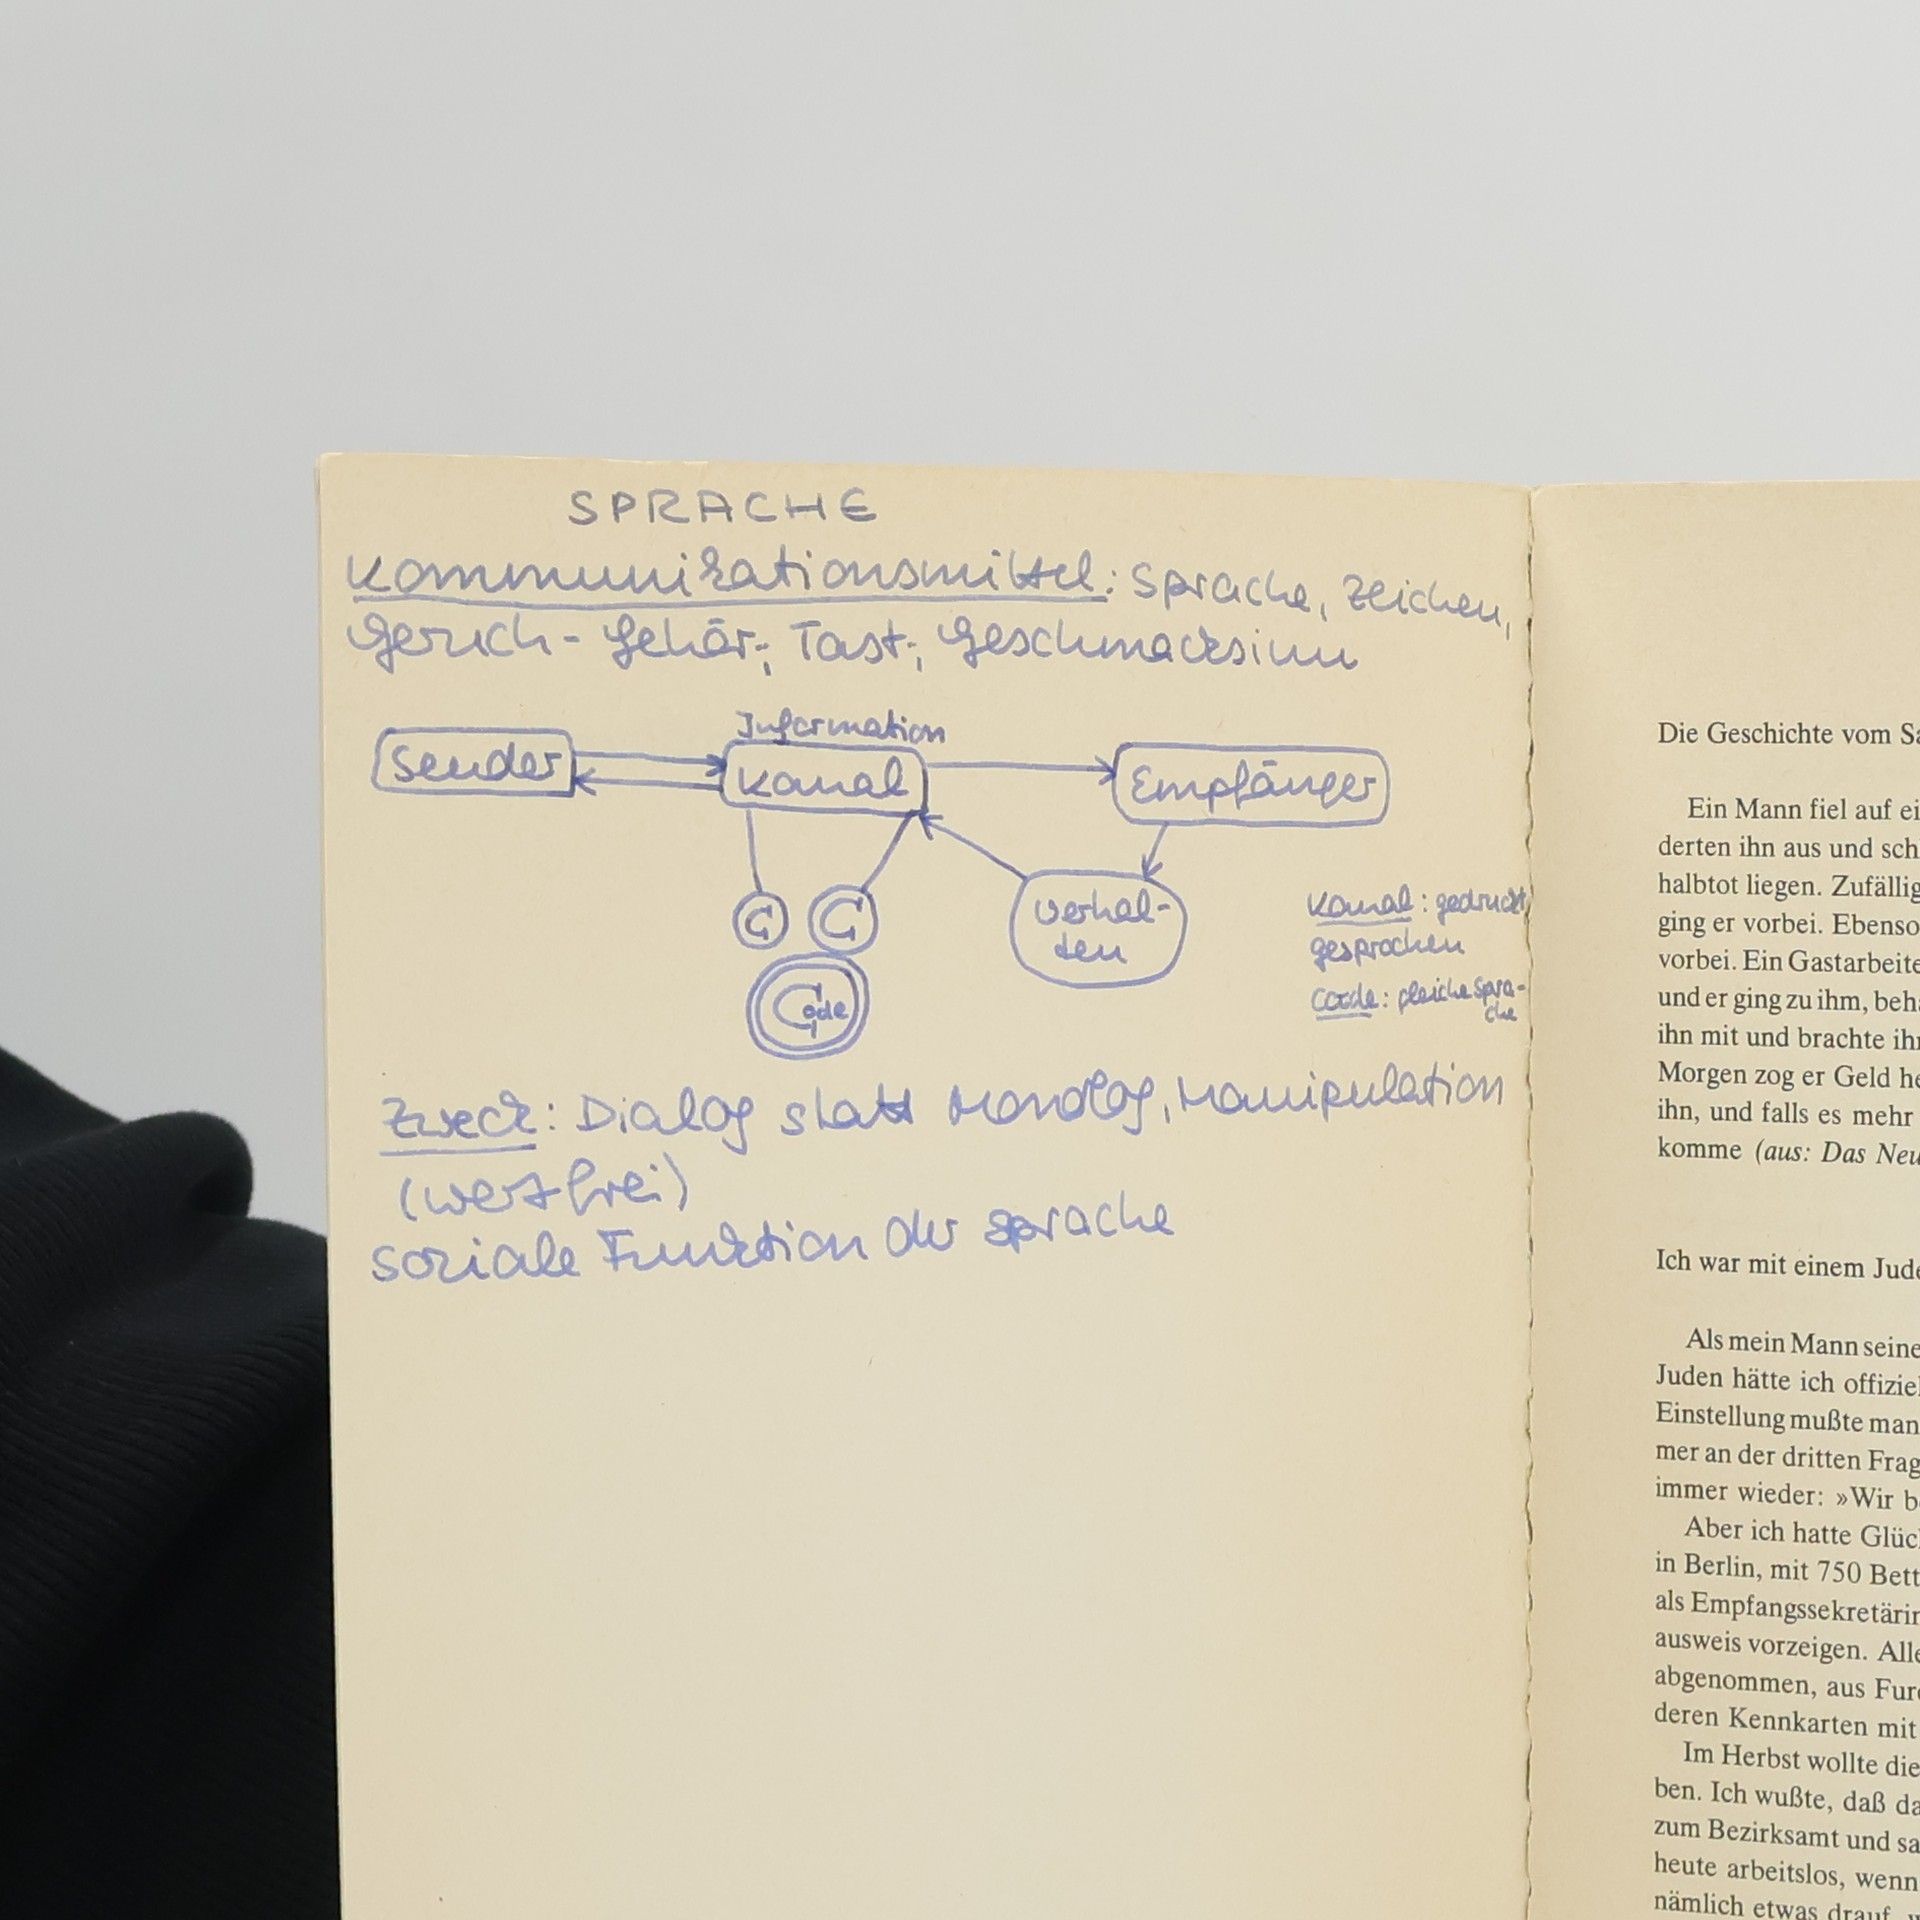 SPRACHE
Kommunikationsmittel: Sprache, Zeichen,
Geruch- Gehör-, Tast-, Geschmacksinn
Information
Sender
Kanal
Empfänger
C
C
Code
Verhal-
ten
Kanal: gedruckt,
gesprochen
Code: gleiche Spra-
che
Zweck: Dialog statt Monolog, Manipulation
(wertfrei)
soziale Funktion der Sprache
Die Geschichte vom Sa
Ein Mann fiel auf ei
derten ihn aus und sch
halbtot liegen. Zufällig
ging er vorbei. Ebenso
vorbei. Ein Gastarbeite
und er ging zu ihm, beh
ihn mit und brachte ih
Morgen zog er Geld he
ihn, und falls es mehr
komme (aus: Das Neu
Ich war mit einem Jude
Als mein Mann seine
Juden hätte ich offiziel
Einstellung mußte man
mer an der dritten Frag
immer wieder: »Wir b
Aber ich hatte Glüc
in Berlin, mit 750 Bett
als Empfangssekretärin
ausweis vorzeigen. Alle
abgenommen, aus Fur
deren Kennkarten mit
Im Herbst wollte die
ben. Ich wußte, daß da
zum Bezirksamt und sa
heute arbeitslos, wenn
nämlich etwas drauf, w